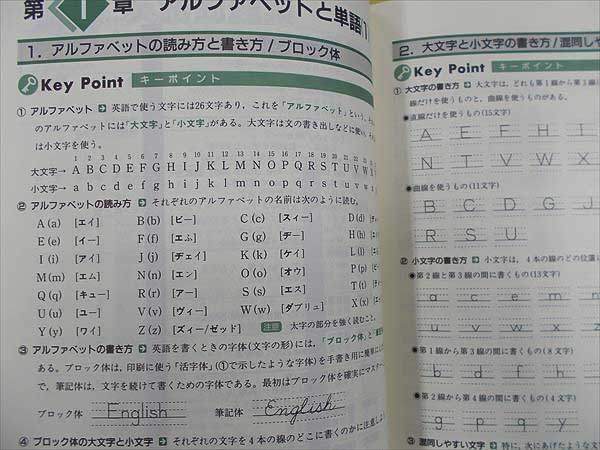 第1章 アルファベットと単語(1
1. アルファベットの読み方と書き方/ブロック体
Key Point キーポイント
① アルファベット ➡ 英語で使う文字には26文字あり、これを「アルファベット」という。
のアルファベットには「大文字」と「小文字」がある。大文字は文の書き出しなどに使い、
は小文字を使う。
1 2 3 4 5 6 7 8 9 10 11 12 13 14 15 16 17 18 19 20 21 22
大文字→ A B C D E F G H I J K L M N O P Q R S T U V W
小文字→ a b c d e f g h i j k l m n o p q r s t u v w
② アルファベットの読み方 ➡ それぞれのアルファベットの名前は次のように読む。
A (a) [エイ] B (b) [ビー] C (c) [スィー] D (d)
E (e) [イー] F (f) [エふ] G (g) [ヂー] H (h)
I (i) [アイ] J (j) [ヂェイ] K (k) [ケイ] L (l)
M (m) [エム] N (n) [エン] O (o) [オウ] P (p)
Q (q) [キュー] R (r) [アー] S (s) [エス] T (t)
U (u) [ユー] V (v) [ヴィー] W (w) [ダブリュ] X (x)
Y (y) [ワイ] Z (z) [ズィー/ゼッド] 注意 太字の部分を強く読むこと。
③ アルファベットの書き方 ➡ 英語を書くときの字体(文字の形)には、「ブロック体」と
ある。ブロック体は、印刷に使う「活字体」(①で示したような字体)を手書き用に簡単に
で、筆記体は、文字を続けて書くための字体である。最初はブロック体を確実にマスター
ブロック体 English 筆記体 English
④ ブロック体の大文字と小文字 ➡ それぞれの文字を4本の線のどこに書くのかに注意し
2. 大文字と小文字の書き方/混同しや
Key Point キーポイント
① 大文字の書き方 ➡ 大文字は、どれも第1線から第3線
線だけを使うものと、曲線を使うものがある。
●直線だけを使うもの(15文字)
A E F H I
N T V W X
●曲線を使うもの(11文字)
B C D G J
R S U
② 小文字の書き方 ➡ 小文字は、4本の線のどの位置に
●第2線と第3線の間に書くもの(13文字)
a c e m n
u v w x z
●第1線から第3線の間に書くもの(8文字)
b d f h
●第2線から第4線の間に書くもの(4文字)
g p q y
③ 混同しやすい文字 ➡ 特に、次にあげたような文字